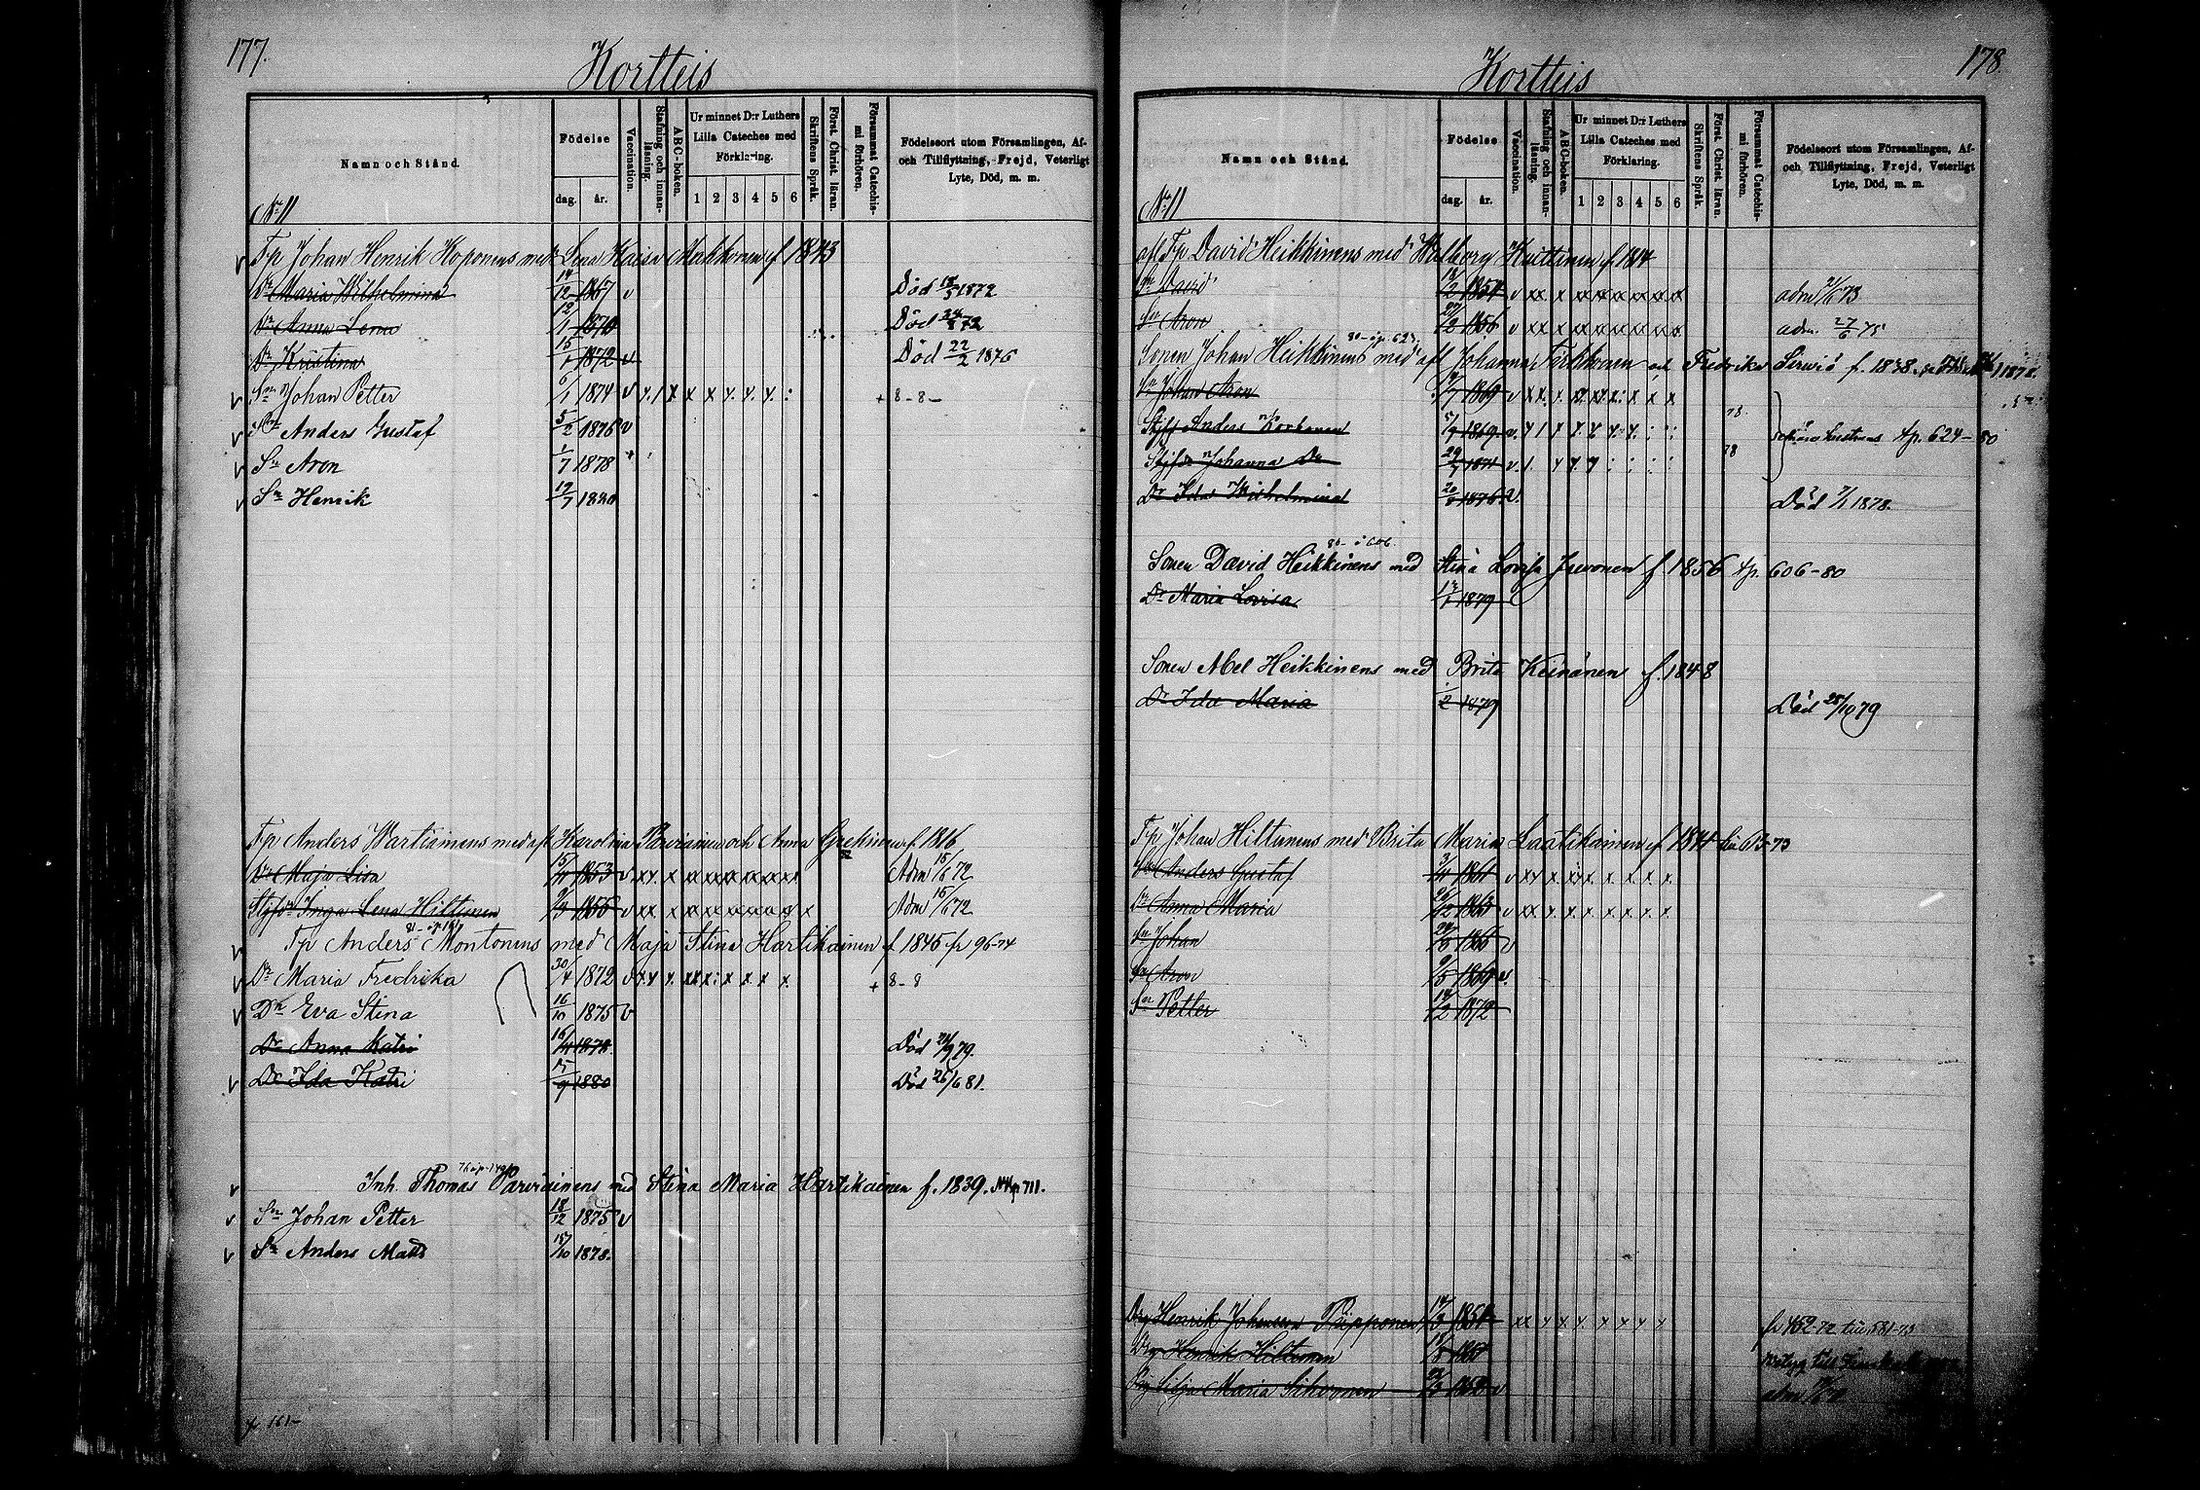 177.
Kortteis
Namn och Stånd.
Födelse
dag. år.
Vaccination.
Stafning och innanläsning.
ABC-boken.
Ur minnet D:r Luthers Lilla Cateches med Förklaring.
1 2 3 4 5 6
Skriftens Språk.
Först. Christ. läran.
Försummat Catechismi förhören.
Födelseort utom Församlingen, Af- och Tillflyttning, Frejd, Veterligt Lyte, Död, m. m.
No 11
Tp Johan Henrik Koponens med Lena Kaisa Makkonen f. 1843
Dr Maria Wilhelmina 14/12 1867 v Död 1872
Dr Anna Lena 12/1 1870 Död 72
Dr Kristina 15/ 1872 v Död 22/2 1876
Sn Johan Petter 6/1 1874 v 8-8-
Sn Anders Gustaf 5/2 1876 v
Sn Aron 1/7 1878
Sn Henrik 19/7 1880
Tp Anders Wartiainens med afl Karolina Parviainen och Anna f. 1816
Dr Maja Lisa 15/ 1853 v Adm 15/6 72
Styfdr Inga Lena Hiltunen 9/3 1856 v Adm 15/6 72
Tp Anders Montonens med Maja Stina Hartikainen f 1845 fr 96-74
Dr Maria Fredrika 30/4 1872 v + 8-8
Dr Eva Stina 16/10 1875 v
Dr Anna Katri 16/11 1878 Död /9 79.
Dr Ida Katri 15/9 1880 Död 26/6 81.
Inh. Thomas Parviainens med Stina Maria Hartikainen f. 1839. 711.
Sn Johan Petter 18/12 1875 v
Sn Anders Matts /10 1878.
fr 161-
178
Kortteis
Namn och Stånd.
Födelse
dag. år.
Vaccination.
Stafning och innanläsning.
ABC-boken.
Ur minnet D:r Luthers Lilla Cateches med Förklaring.
1 2 3 4 5 6
Skriftens Språk.
Först. Christ. läran.
Försummat Catechismi förhören.
Födelseort utom Församlingen, Af- och Tillflyttning, Frejd, Veterligt Lyte, Död, m. m.
No 11
afl Tp David Heikkinens med Walborg f. 1814
Sn David /2 1854 v adm /6 73
Sn Aron /2 1856 v adm. 27/6 75
Sonen Johan Heikkinens med afl Johanna Tarkkonen och Fredrika f. 1838. 1878.
Sn Johan Aron /7 1869 v
Styfs Anders Korhonen 5/9 1869 v 78 tp. 624-80
Styfdr Johanna Do 29/ 1871 v 78
Dr Ida Wilhelmina 20/ 1876 v. Död 7/1 1878.
Sonen David Heikkinens med Stina Lovisa f 1856 tp. 606-80
Dr Maria Lovisa 1879
Sonen Abel Heikkinens med Brita Keinänen f. 1848
Dr Ida Maria /2 1879 Död 25/10 79
Tp Johan Hiltunens med Brita Maria Laatikainen f 1844
Sn Anders Gustaf 1861 v
Dr Anna Maria 26/12 1863 v
Sn Johan 1866 v
Sn Aron 9/5 1869 v.
Sn Petter 14/2 1872
Drg Henrik Johansson Piipponen 14/3 1854 fr 452-72
Drg Henrik Hiltunen
Pig Maria Sihvonen